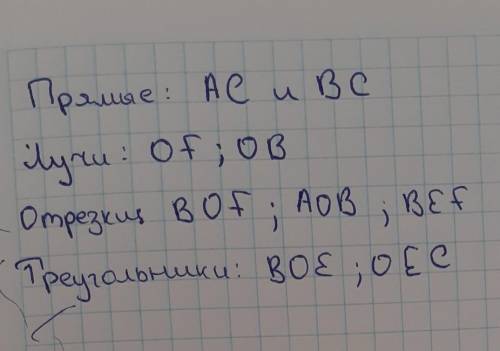 Прямые: АС и ВС
Лучи: OF; OB
Отрезки: BOF; AOB; BEF
Треугольники: BOE; OEC